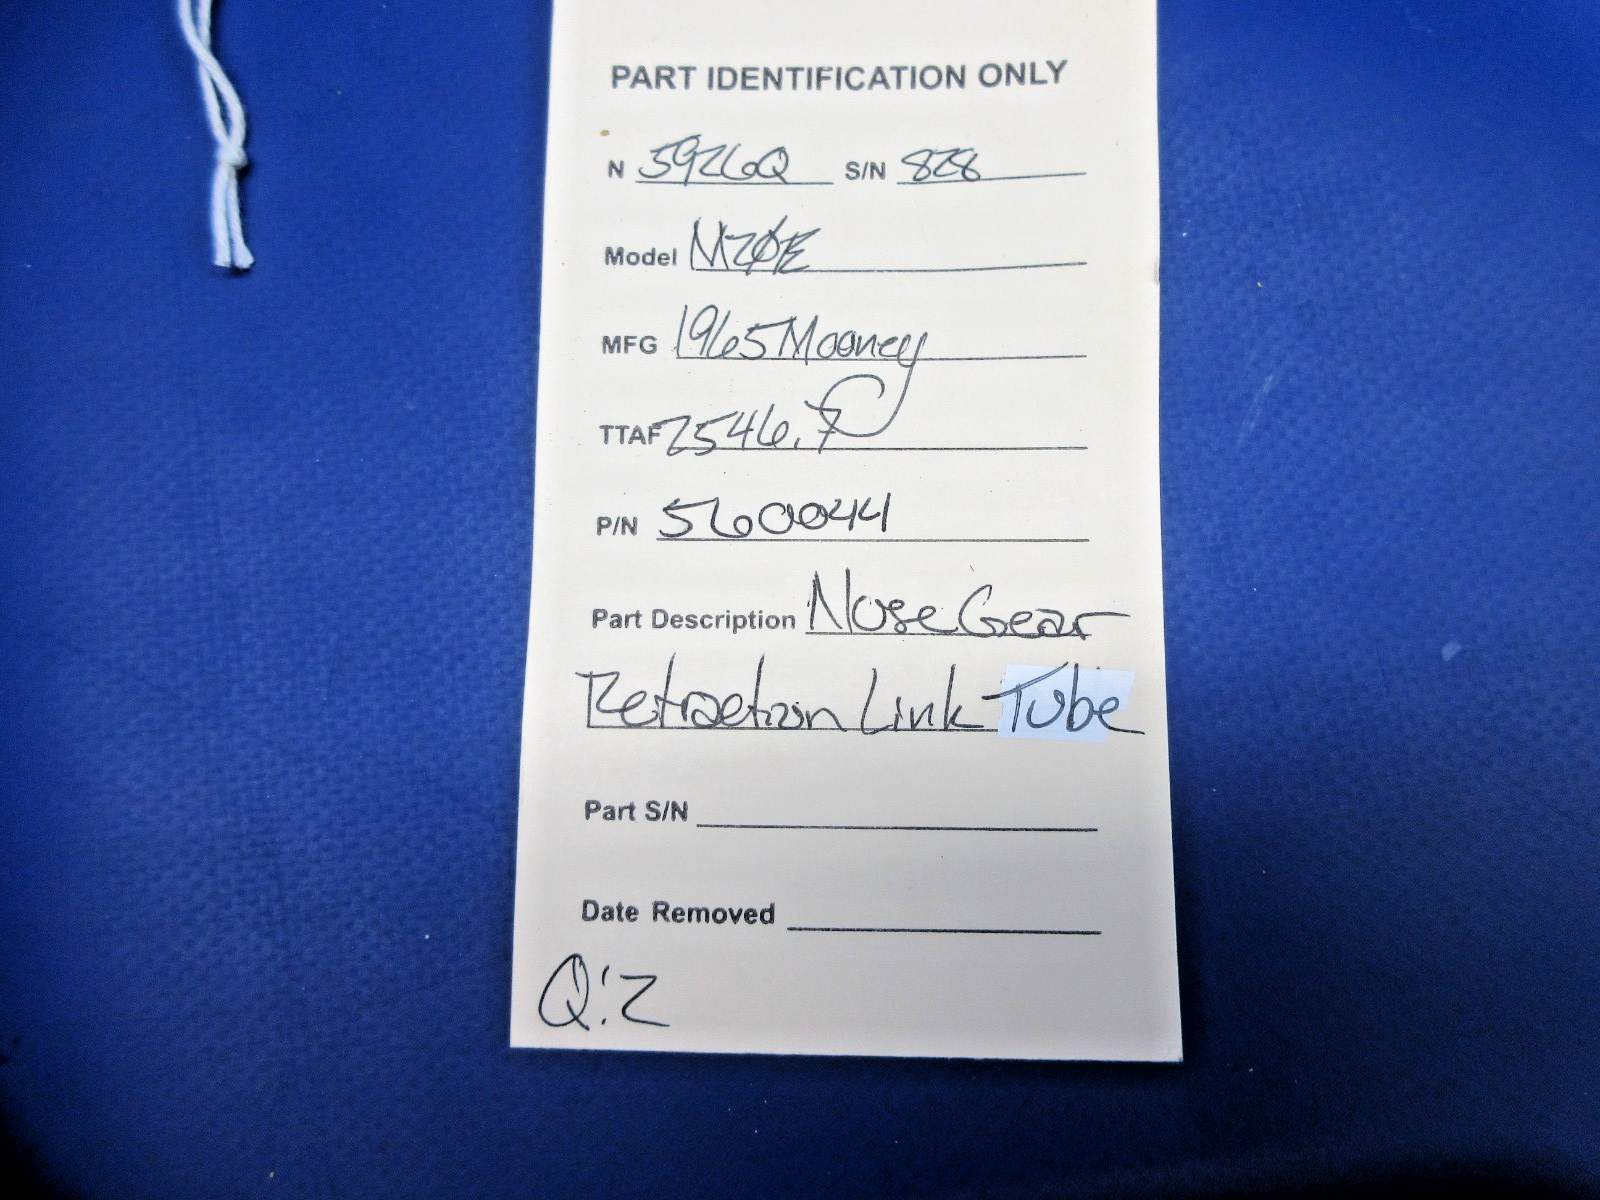 PART IDENTIFICATION ONLY
N 5926Q S/N 828
Model M20E
MFG 1965 Mooney
TTAF 2546.7
P/N 560044
Part Description Nose Gear
Retraction Link Tube
Part S/N
Date Removed
Q:2